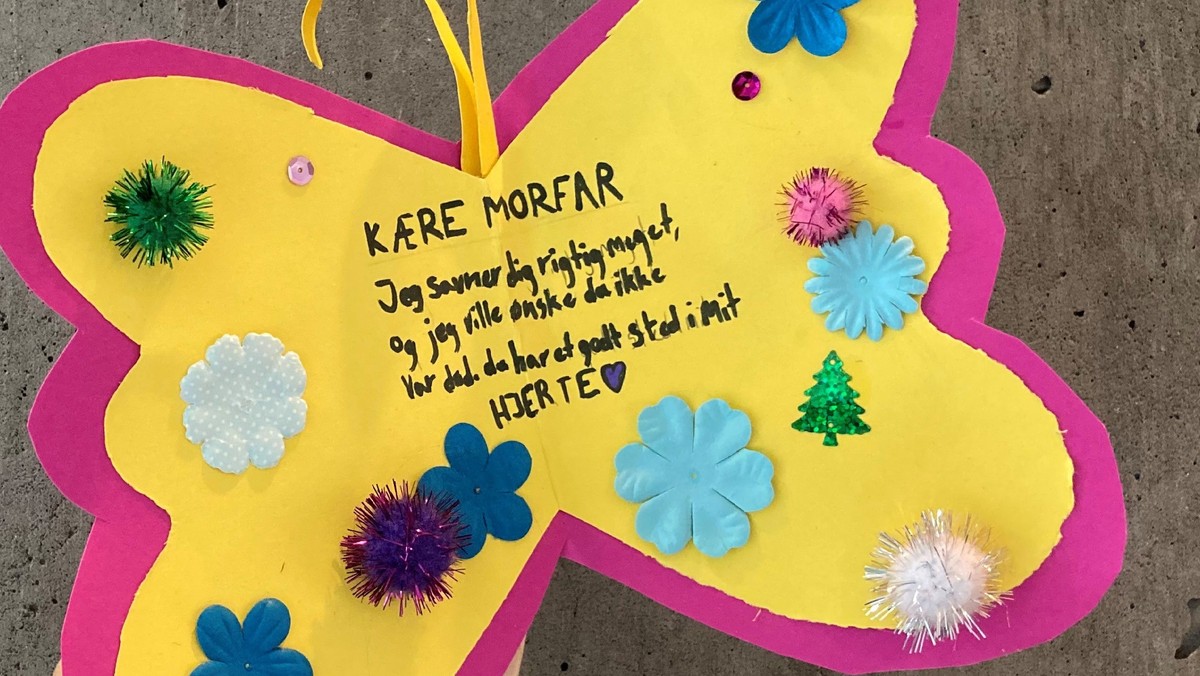 KÆRE MORFAR
Jeg savner dig rigtig meget,
og jeg ville ønske du ikke
var død. du har et godt sted i Mit
HJERTE